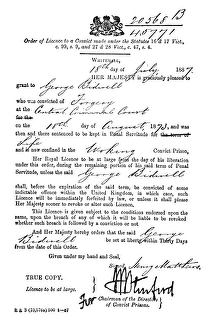 20568 B
48771
Order of Licence to a Convict made under the Statutes 16 & 17 Vict.,
c. 99, s. 9, and 27 & 28 Vict., c. 47, s. 4.
WHITEHALL,
18th day of July 1887.
HER MAJESTY is graciously pleased to
grant to George Bidwell
who was convicted of Forgery
at the Central Criminal Court
on the 18th day of August 1873, and was
then and there sentenced to be kept in Penal Servitude for
Life
and is now confined in the Woking Convict Prison,
Her Royal Licence to be at large from the day of his liberation
under this order, during the remaining portion of his said term of Penal
Servitude, unless the said George Bidwell
shall, before the expiration of the said term, be convicted of some
indictable offence within the United Kingdom, in which case, such
Licence will be immediately forfeited by law, or unless it shall please
Her Majesty sooner to revoke or alter such Licence.
This Licence is given subject to the conditions endorsed upon the
same, upon the breach of any of which it will be liable to be revoked
whether such breach is followed by a conviction or not.
And Her Majesty hereby orders that the said George
Bidwell be set at liberty within Thirty Days
from the date of this Order.
Given under my hand and Seal,
Henry Matthews.
TRUE COPY.
Licence to be at large.
For
Chairman of the Directors
of Convict Prisons.